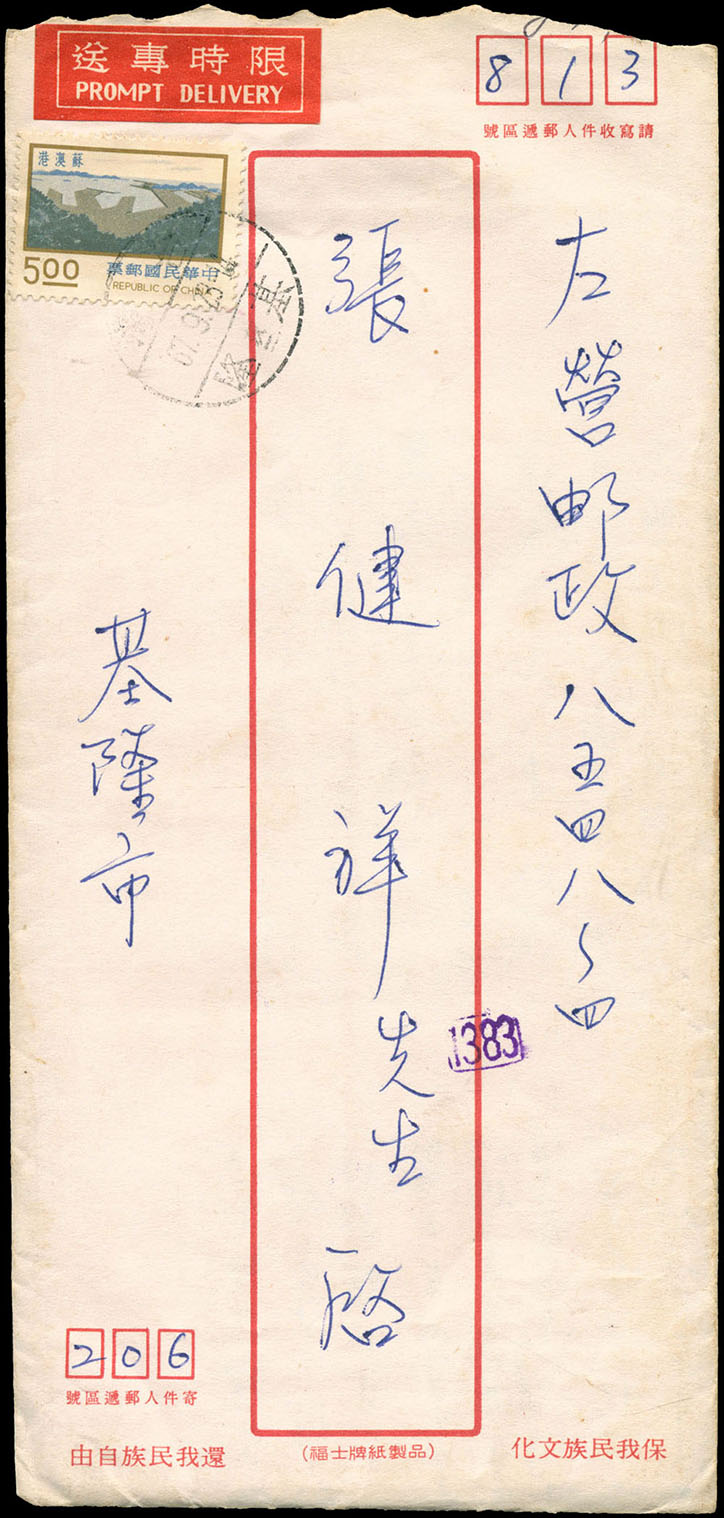 限時專送
PROMPT DELIVERY
813
請寫收件人郵遞區號
蘇澳港
500
中華民國郵票
REPUBLIC OF CHINA
左營邮政八五四八~四
張健祥先生啓
1383
基隆市
206
寄件人郵遞區號
保我民族文化
(福士牌紙製品)
還我民族自由